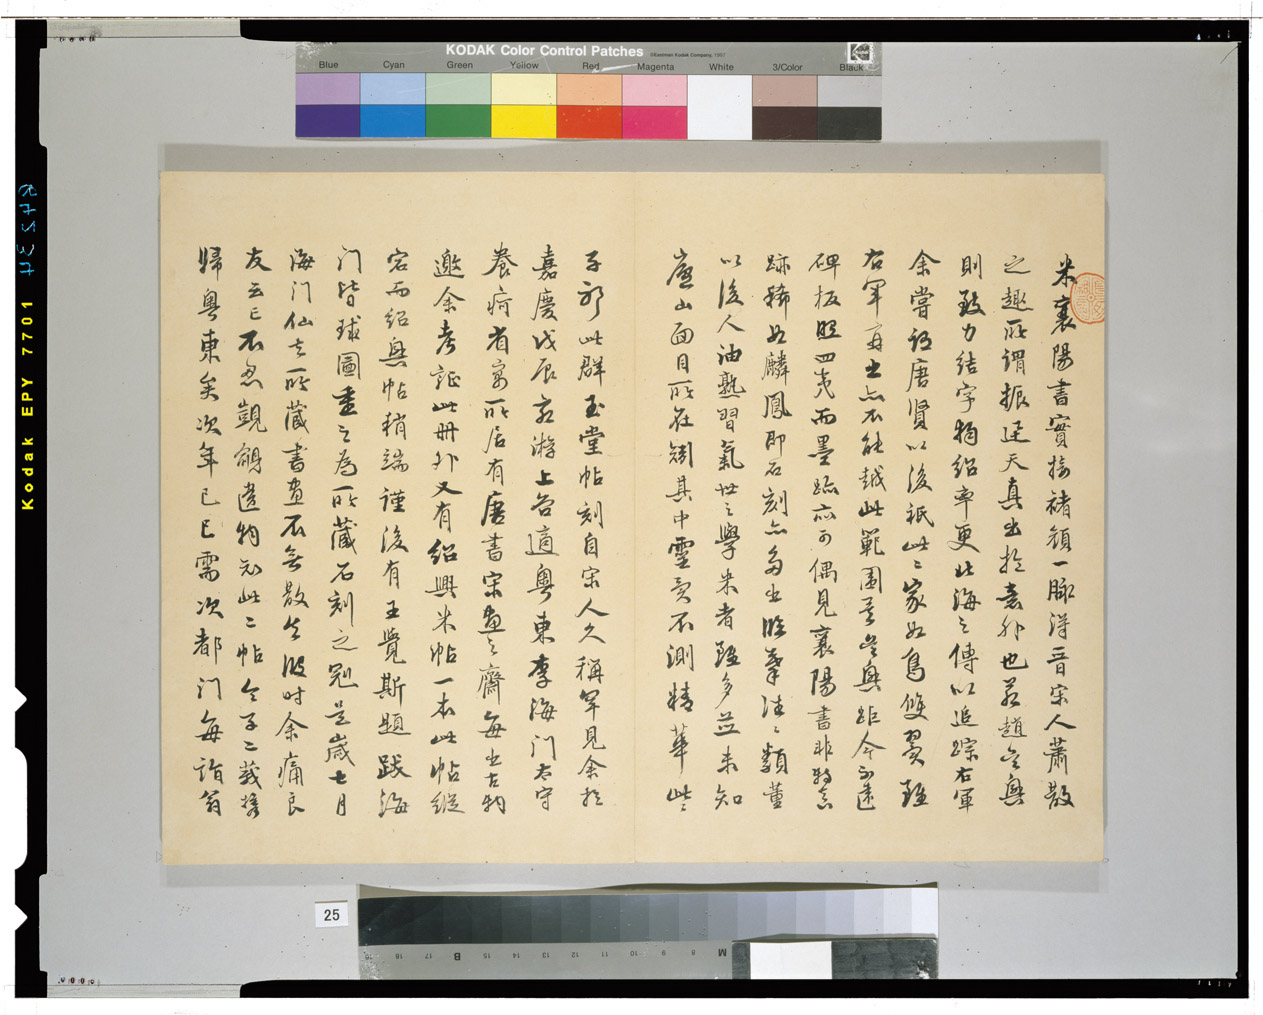 KODAK Color Control Patches
©Eastman Kodak Company, 1997
Kodak
Blue Cyan Green Yellow Red Magenta White 3/Color Black
米襄陽書實接褚顏一脈得晉宋人蕭散
之趣所謂振迅天真出於意外也若趙吳興
則致力結字精紹率更北海之傳以追踪右軍
余嘗論唐賢以後祇此二家如鳥雙翼雖
右軍再出亦不能越此範圍吳興距今不遠
碑板照四夷而墨跡亦可偶見襄陽書非特真
跡稀如麟鳳即石刻亦多出臨摹注々類董
以後人油熟習氣世之學米者雖多並未知
廬山面目所在閱其中靈奇不測精華此々
子郭此群玉堂帖刻自宋人久稱罕見余於
嘉慶戊辰之游上谷適粵東李海門太守
養疴省寓所居有唐書宋畫之齋每出古物
邀余考証此冊外又有紹興米帖一本此帖縱
宕而紹興帖稍端謹後有王覺斯題跋海
门皆球圖重之為所藏石刻之冠是歲七月
海门仙去所藏書畫不無散失彼时余痛良
友云亡不忍覩儩遺物知此二帖令子二莪攜
歸粵東矣次年己巳需次都门每詣翁
25
Kodak EPY 7701
M 8 9 10 11 12 13 14 15 B 17 18 19